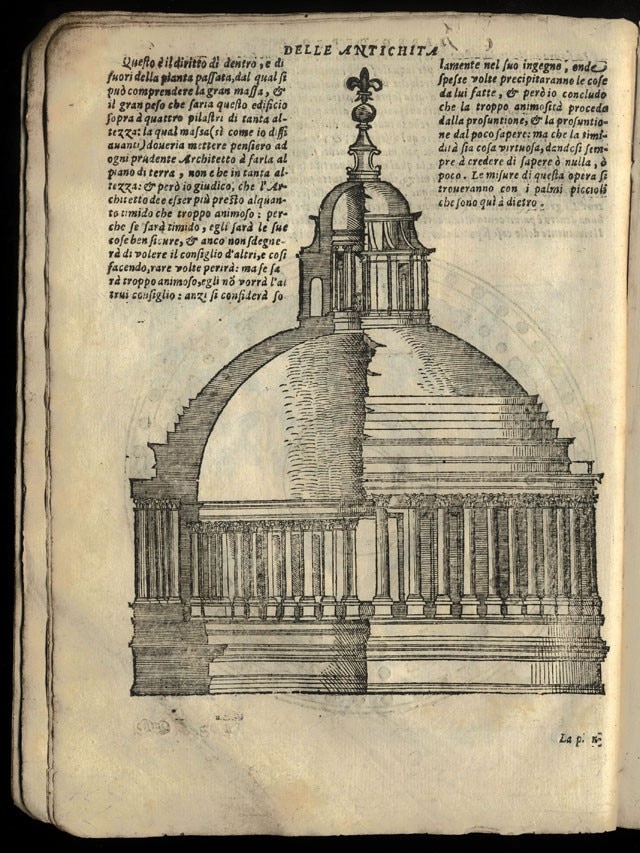 DELLE ANTICHITA
Questo è il diritto di dentro, e di
fuori della pianta passata, dal qual si
può comprendere la gran massa, &
il gran peso che saria questo edificio
sopra à quattro pilastri di tanta al-
tezza: la qual massa (sì come io dissi
auanti) doueria mettere pensiero ad
ogni prudente Architetto à farla al
piano di terra, non che in tanta al-
tezza: & però io giudico, che l'Ar-
chitetto dee esser più presto alquan-
to timido che troppo animoso: per-
che se sarà timido, egli farà le sue
cose ben sicure, & anco non sdegne-
rà di volere il consiglio d'altri, e così
facendo, rare volte perirà: ma se sa
rà troppo animoso, egli nõ vorrà l'al
trui consiglio: anzi si confiderà so
lamente nel suo ingegno, onde
spesse volte precipitaranno le cose
da lui fatte, & però io concludo
che la troppo animosità proceda
dalla prosuntione, & la prosuntio-
ne dal poco sapere: ma che la timi-
dità sia cosa virtuosa, dandosi sem-
pre à credere di sapere ò nulla, ò
poco. Le misure di questa opera si
troueranno con i palmi piccioli
che sono quì à dietro.
La p.